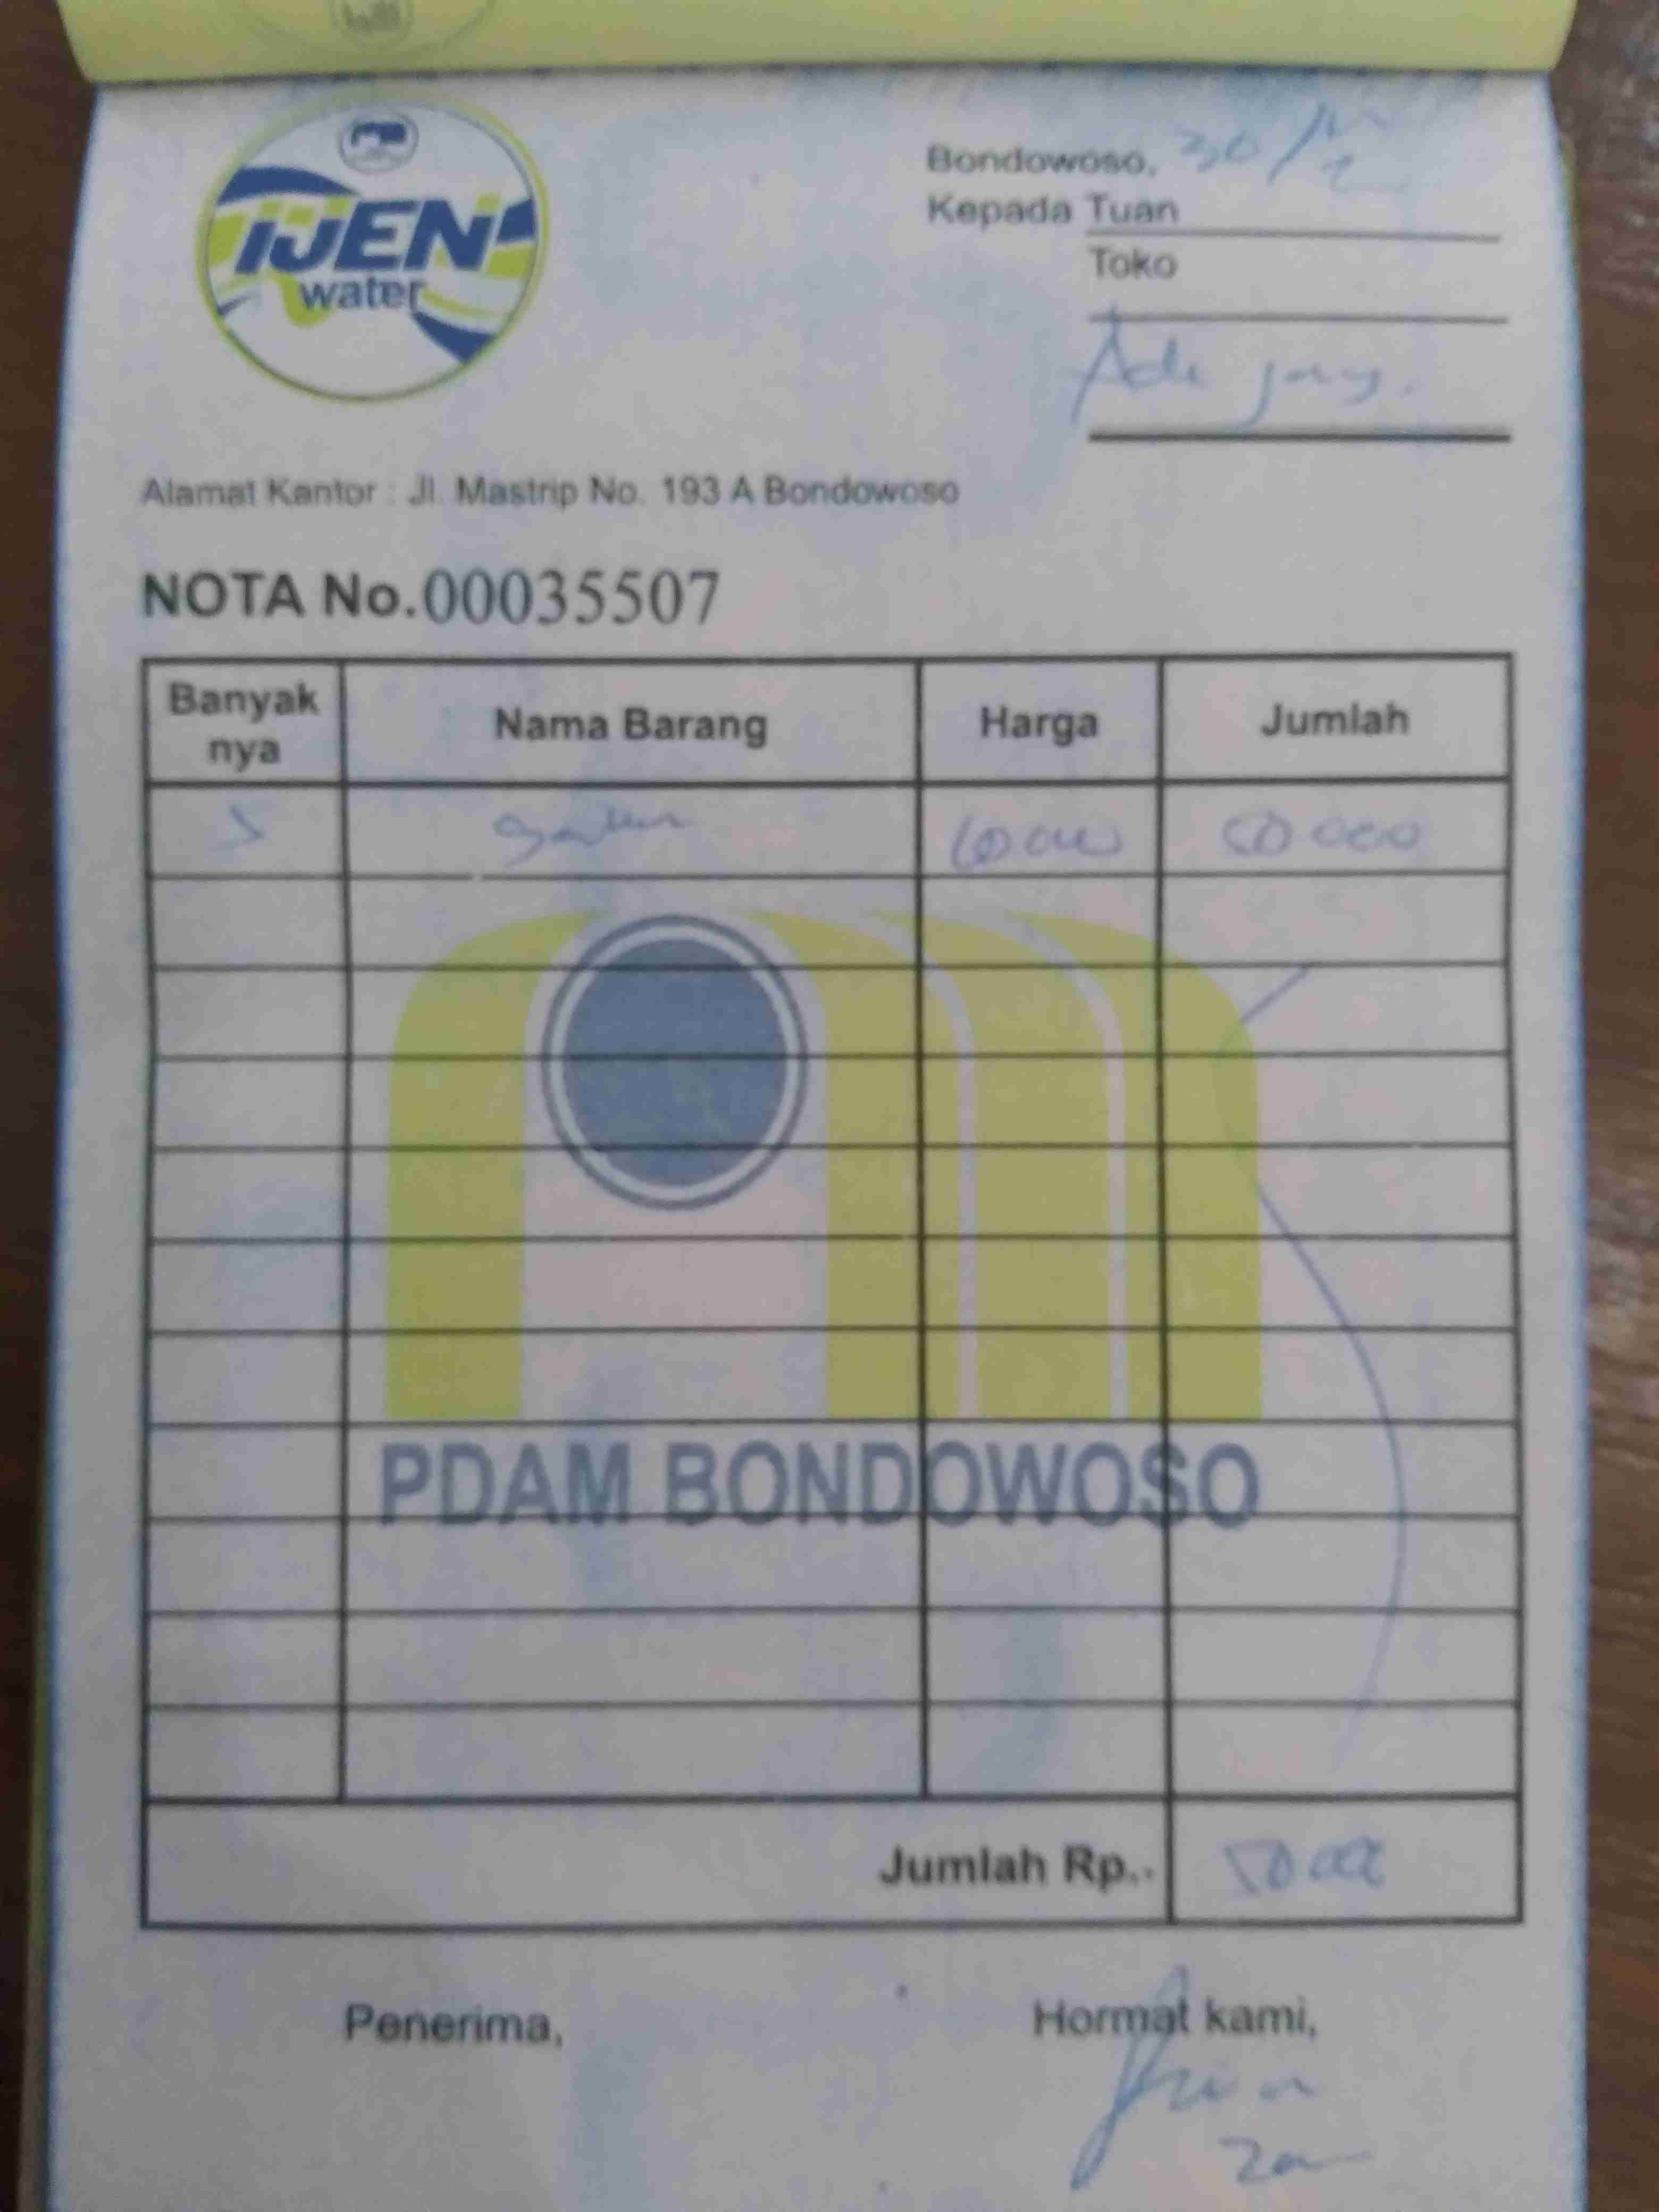 IJEN
water
Bondowoso, 30/12
Kepada Tuan
Toko
Alamat Kantor : Jl. Mastrip No. 193 A Bondowoso
NOTA No.00035507
Banyak nya Nama Barang Harga Jumlah
5 10000 50000
PDAM BONDOWOSO
Jumlah Rp..
Penerima, Hormat kami,